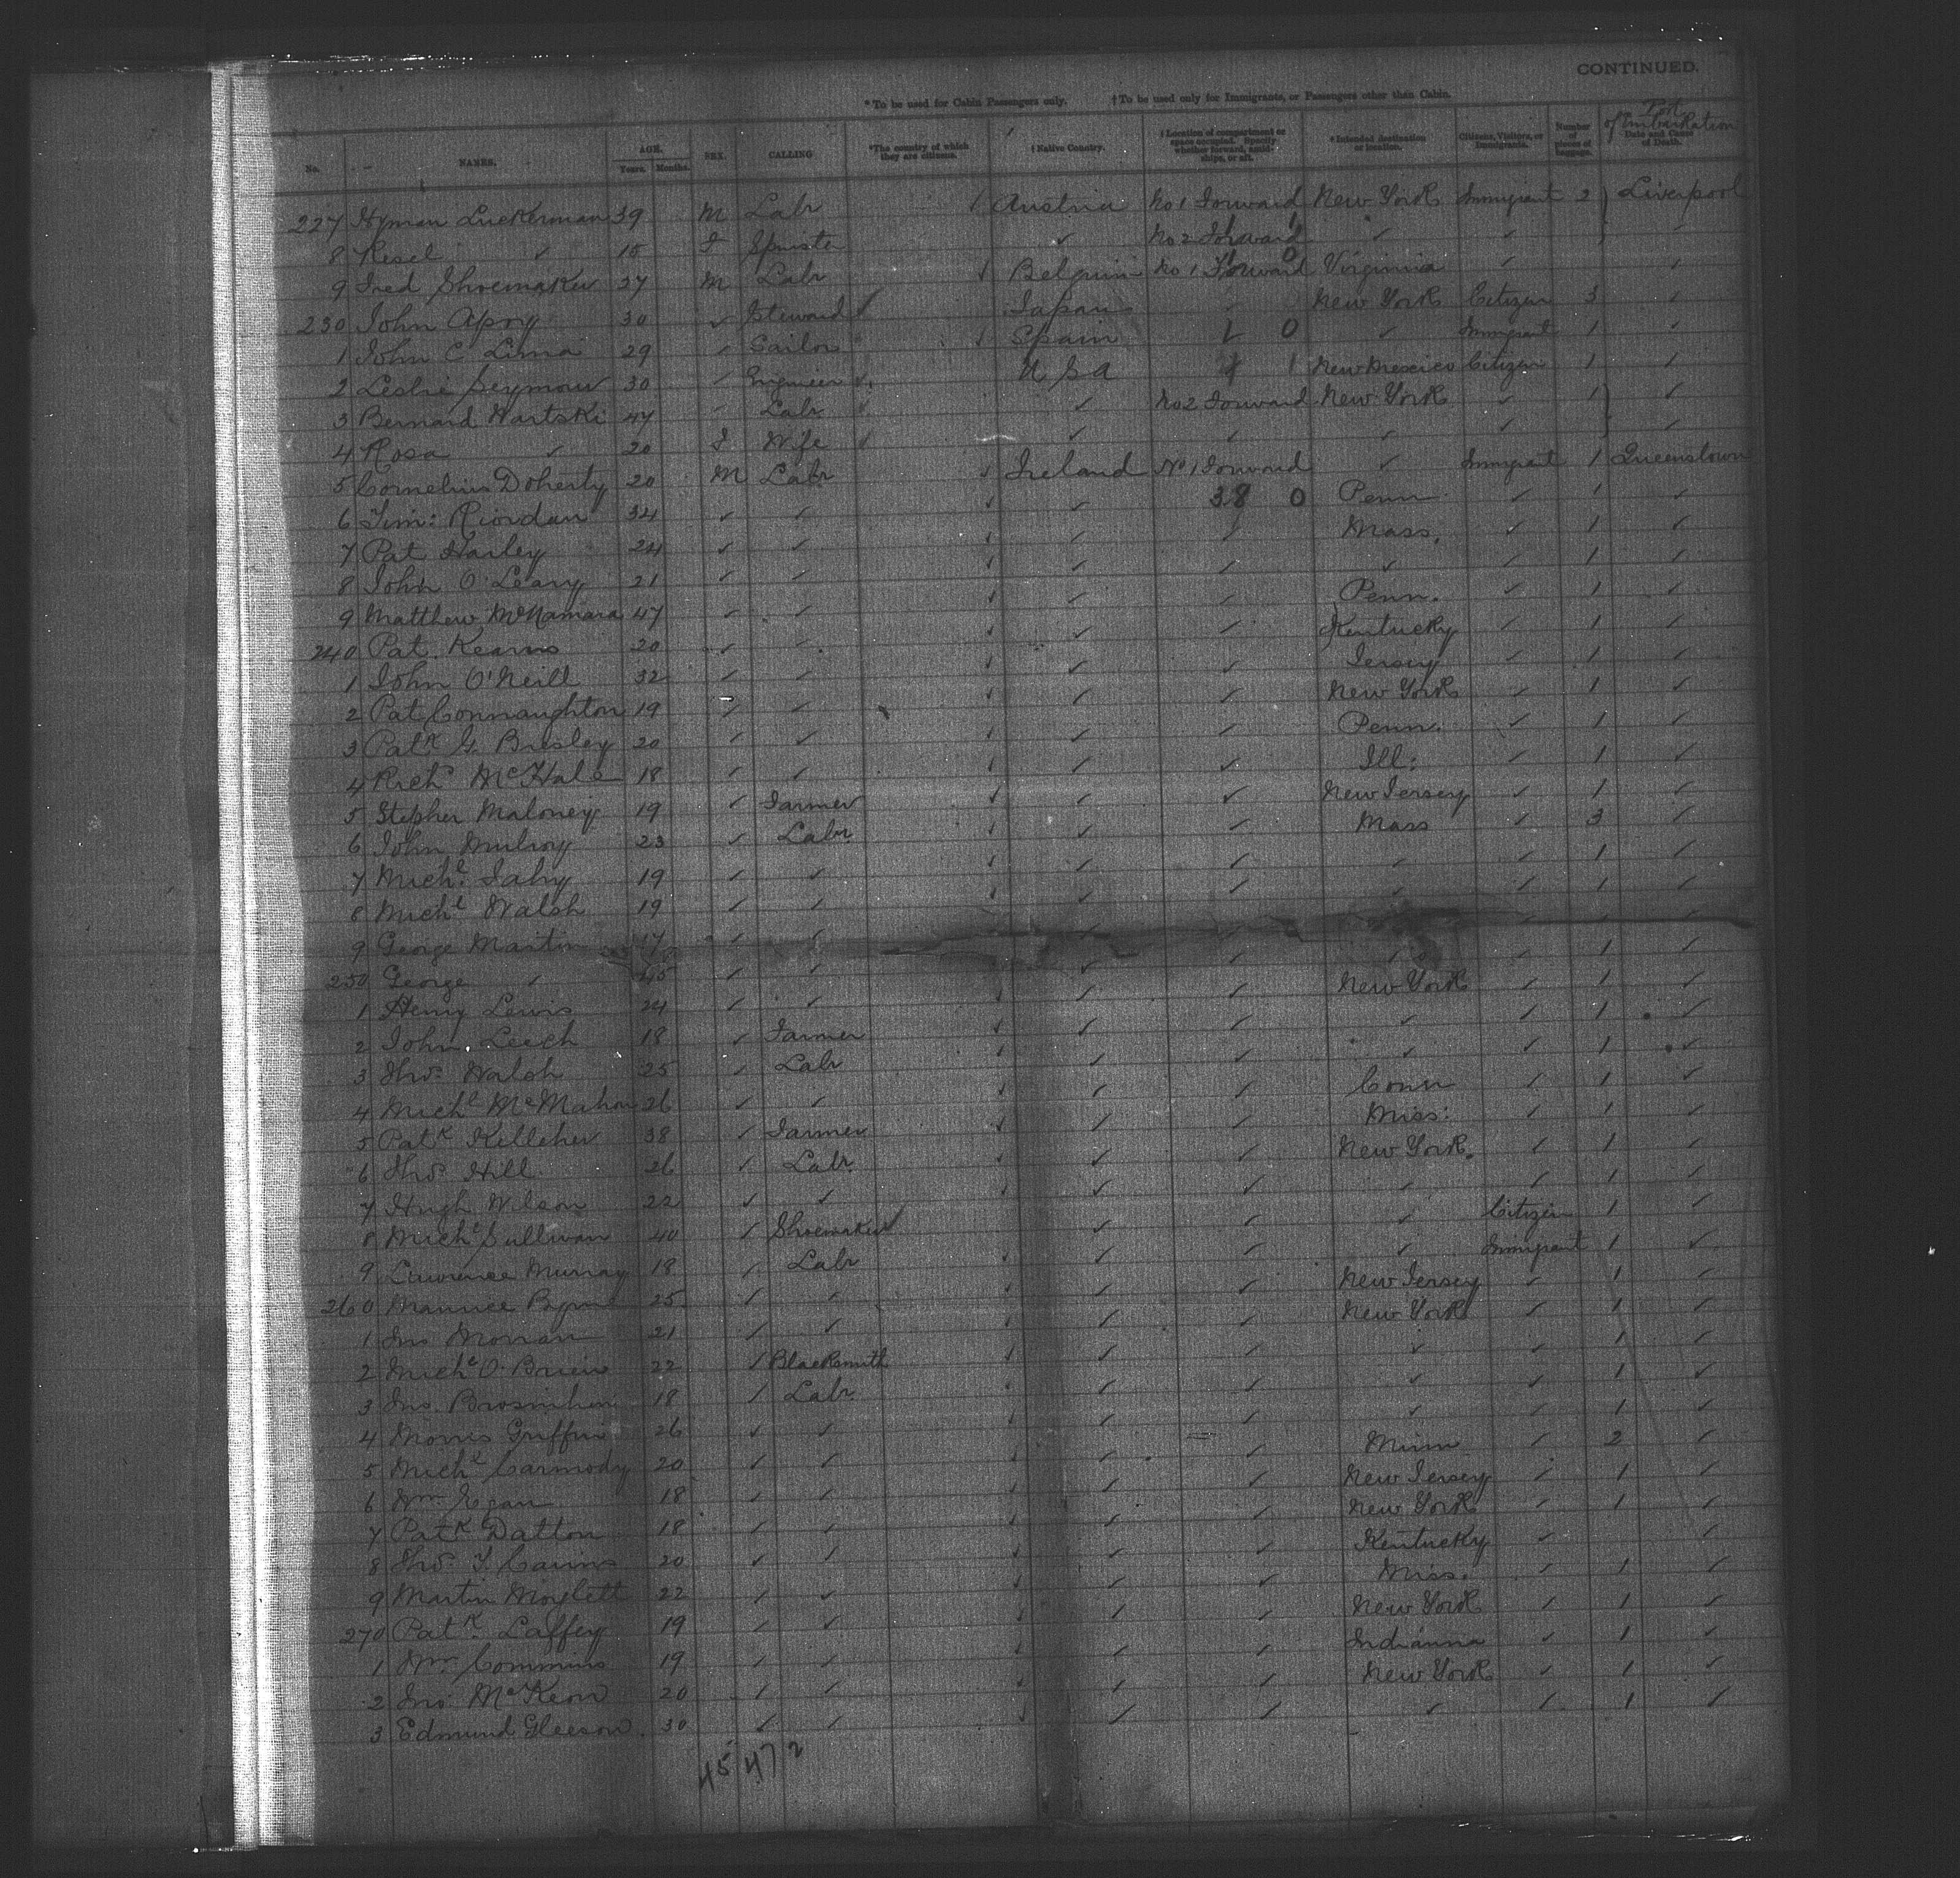 CONTINUED.
*To be used for Cabin Passengers only. †To be used only for Immigrants, or Passengers other than Cabin.
Port of Embarkation
No. NAMES. AGE. Years. Months. SEX. CALLING *The country of which they are citizens. †Native Country. †Location of compartment or space occupied. Specify whether forward, amidships, or aft. *Intended destination or location. Citizens, Visitors, or Immigrants. Number of pieces of baggage. Date and Cause of Death.
227 Hyman Luckerman 39 M Labr ✓ Austria No 1 Forward New York Immigrant 2 Liverpool
8 Resel ✓ 15 F Spinster ✓ No 2 Forward ✓ ✓ ✓
9 Fred Shoemaker 27 M Labr ✓ Belgium No 1 Forward Virginia ✓ ✓
230 John Apry 30 ✓ Steward ✓ Japan ✓ New York Citizen 3 ✓
1 John C Lima 29 ✓ Sailor ✓ Spain 1 0 ✓ Immigrant 1 ✓
2 Leslie Seymour 30 ✓ Engineer ✓ U S A 1 New Mexico Citizen 1 ✓
3 Bernard Wartski 47 ✓ Labr ✓ ✓ No 2 Forward New York ✓ 1 ✓
4 Rosa ✓ 20 F Wife ✓ ✓ ✓ ✓ ✓ ✓
5 Cornelius Doherty 20 M Labr ✓ Ireland No 1 Forward ✓ Immigrant 1 Queenstown
6 Tim: Riordan 34 ✓ ✓ ✓ ✓ 38 0 Penn ✓ 1 ✓
7 Pat Harley 24 ✓ ✓ ✓ ✓ ✓ Mass. ✓ 1 ✓
8 John O'Leary 21 ✓ ✓ ✓ ✓ ✓ ✓ ✓ 1 ✓
9 Matthew McNamara 47 ✓ ✓ ✓ ✓ ✓ Penn. ✓ 1 ✓
240 Pat. Kearns 20 ✓ ✓ ✓ ✓ ✓ Kentucky ✓ 1 ✓
1 John O'Neill 32 ✓ ✓ ✓ ✓ ✓ Jersey ✓ 1 ✓
2 Pat Connaughton 19 ✓ ✓ ✓ ✓ ✓ New York ✓ 1 ✓
3 Patk G. Brisley 20 ✓ ✓ ✓ ✓ ✓ Penn. ✓ 1 ✓
4 Richd McHale 18 ✓ ✓ ✓ ✓ ✓ Ill: ✓ 1 ✓
5 Stephen Maloney 19 ✓ Farmer ✓ ✓ ✓ New Jersey ✓ 1 ✓
6 John Mulroy 23 ✓ Labr. ✓ ✓ ✓ Mass ✓ 3 ✓
7 Michl. Fahy 19 ✓ ✓ ✓ ✓ ✓ ✓ ✓ 1 ✓
8 Michl Walsh 19 ✓ ✓ ✓ ✓ ✓ ✓ ✓ 1 ✓
9 George Martin 17 ✓ ✓ ✓ ✓ ✓
250 George ✓ 45 ✓ ✓ ✓ ✓ ✓ 1 ✓
1 Henry Lewis 24 ✓ ✓ ✓ ✓ ✓ New York ✓ 1 ✓
2 John Leech 18 ✓ Farmer ✓ ✓ ✓ ✓ ✓ 1 ✓
3 Thos. Walsh 25 ✓ Labr ✓ ✓ ✓ ✓ ✓ 1 ✓
4 Michl McMahon 26 ✓ ✓ ✓ ✓ ✓ Conn ✓ 1 ✓
5 Patk Kelleher 38 ✓ Farmer ✓ ✓ ✓ Miss: ✓ 1 ✓
6 Thos. Hill 26 ✓ Labr. ✓ ✓ ✓ New York. ✓ 1 ✓
7 Hugh Wilson 22 ✓ ✓ ✓ ✓ ✓ ✓ ✓ 1 ✓
8 Michl Sullivan 40 ✓ Shoemaker ✓ ✓ ✓ ✓ Citizen 1 ✓
9 Lawrence Murray 18 ✓ Labr ✓ ✓ ✓ ✓ Immigrant 1 ✓
260 Maurice Byrne 25 ✓ ✓ ✓ ✓ ✓ New Jersey ✓ 1 ✓
1 Jno Morran 21 ✓ ✓ ✓ ✓ ✓ New York ✓ 1 ✓
2 Michl O'Brien 22 ✓ Blacksmith ✓ ✓ ✓ ✓ ✓ 1 ✓
3 Jno. Brosnihan 18 ✓ Labr. ✓ ✓ ✓ ✓ ✓ 1 ✓
4 Morris Griffin 26 ✓ ✓ ✓ ✓ ✓ ✓ ✓ 1 ✓
5 Michl Carmody 20 ✓ ✓ ✓ ✓ ✓ Minn ✓ 2 ✓
6 Wm Egan 18 ✓ ✓ ✓ ✓ ✓ New Jersey ✓ 1 ✓
7 Patk Dalton 18 ✓ ✓ ✓ ✓ ✓ New York ✓ 1 ✓
8 Thos. F Cairns 20 ✓ ✓ ✓ ✓ ✓ Kentucky ✓ ✓
9 Martin Moylett 22 ✓ ✓ ✓ ✓ ✓ Miss. ✓ 1 ✓
270 Patk. Laffey 19 ✓ ✓ ✓ ✓ ✓ New York ✓ 1 ✓
1 Wm. Commins 19 ✓ ✓ ✓ ✓ ✓ Indianna ✓ 1 ✓
2 Jno. McKeon 20 ✓ ✓ ✓ ✓ ✓ New York ✓ 1 ✓
3 Edmund Gleeson. 30 ✓ ✓ ✓ ✓ ✓ ✓ ✓ 1 ✓
45 47 2